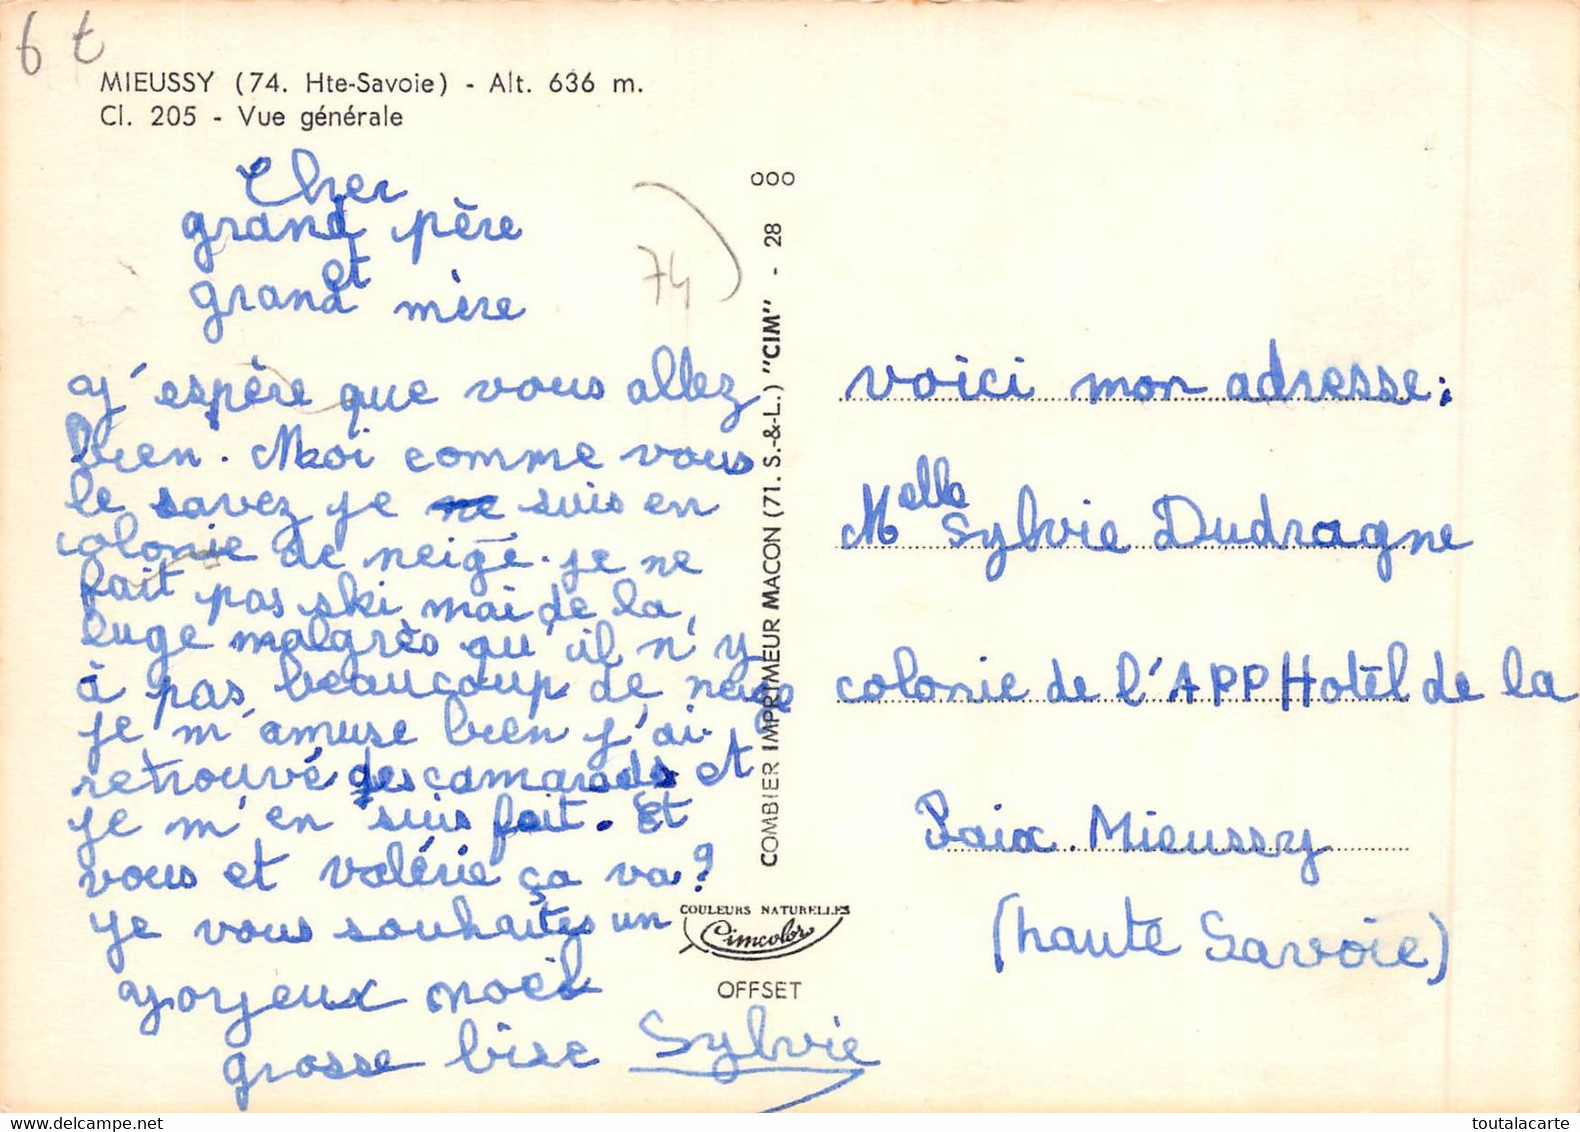 6 t
MIEUSSY (74. Hte-Savoie) - Alt. 636 m.
Cl. 205 - Vue générale
Cher
grand père
et
grand mère
j'espère que vous allez
bien. Moi comme vous
le savez je ne suis en
colonie de neige. je ne
fait pas ski mai de la
luge malgrès qu'il n'y
à pas beaucoup de neige
je m'amuse bien j'ai
retrouvé des camarads et
je m'en suis fait. Et
vous et valérie ça va?
je vous souhaites un
joyjeux noël
grosse bise Sylvie
74
000
COMBIER IMPRIMEUR MACON (71. S.-&-L.) "CIM" - 28
COULEURS NATURELLES
Cimcolor
OFFSET
voici mon adresse:
Melle Sylvie Dudragne
colonie de l'APP Hotêl de la
Paix. Mieussy
(haute Savoie)
toutalacarte